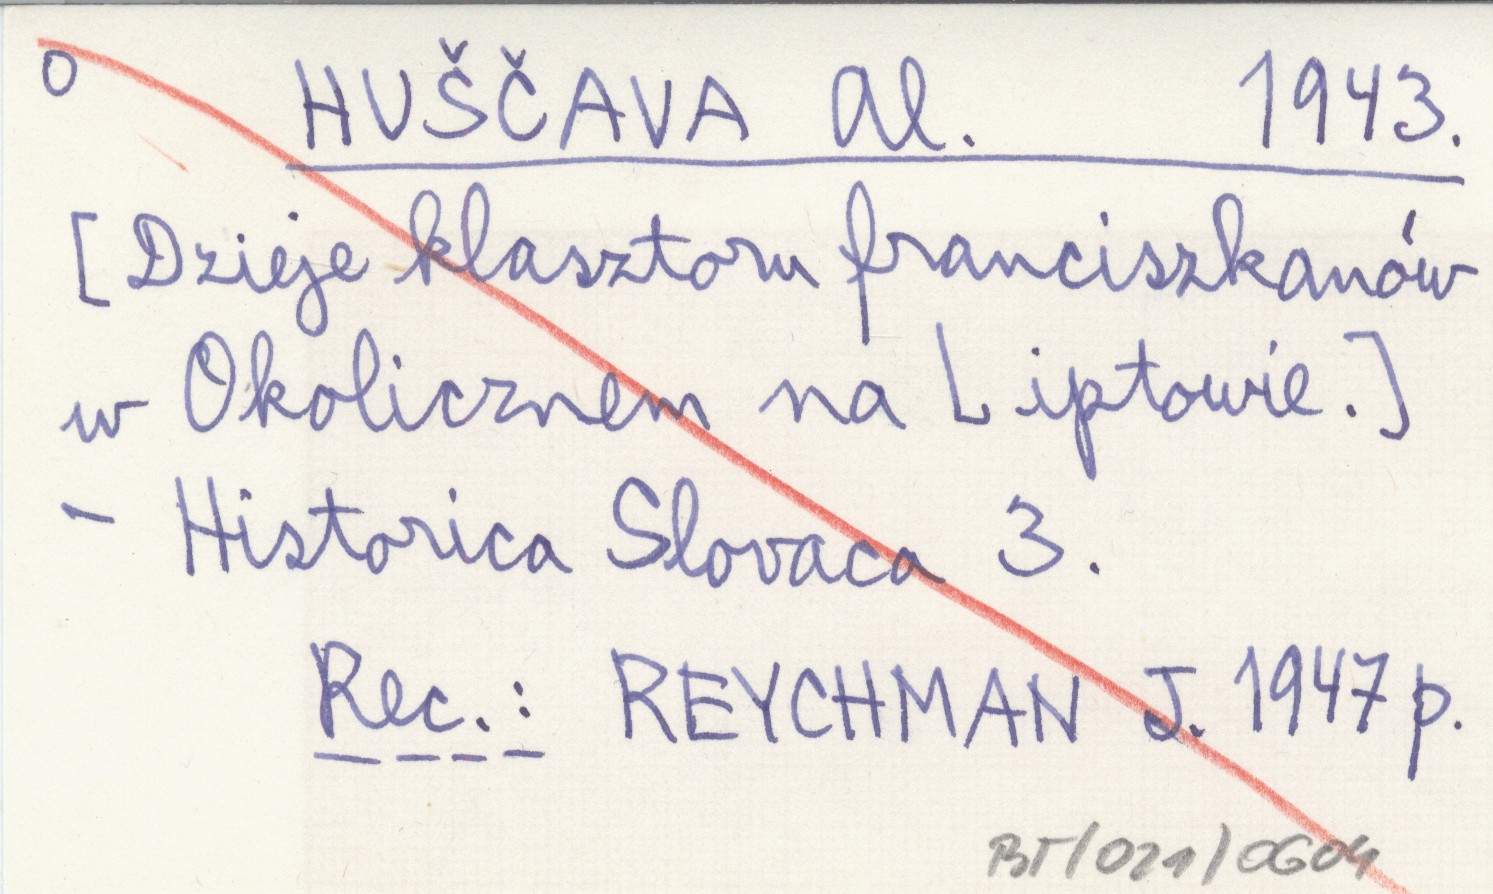 O
HUŠČAVA Al. 1943.
[Dzieje klasztoru franciszkanów
w Okolicznem na Liptowie.]
- Historica Slovaca 3.
Rec.: REYCHMAN J. 1947 p.
BT/021/0604